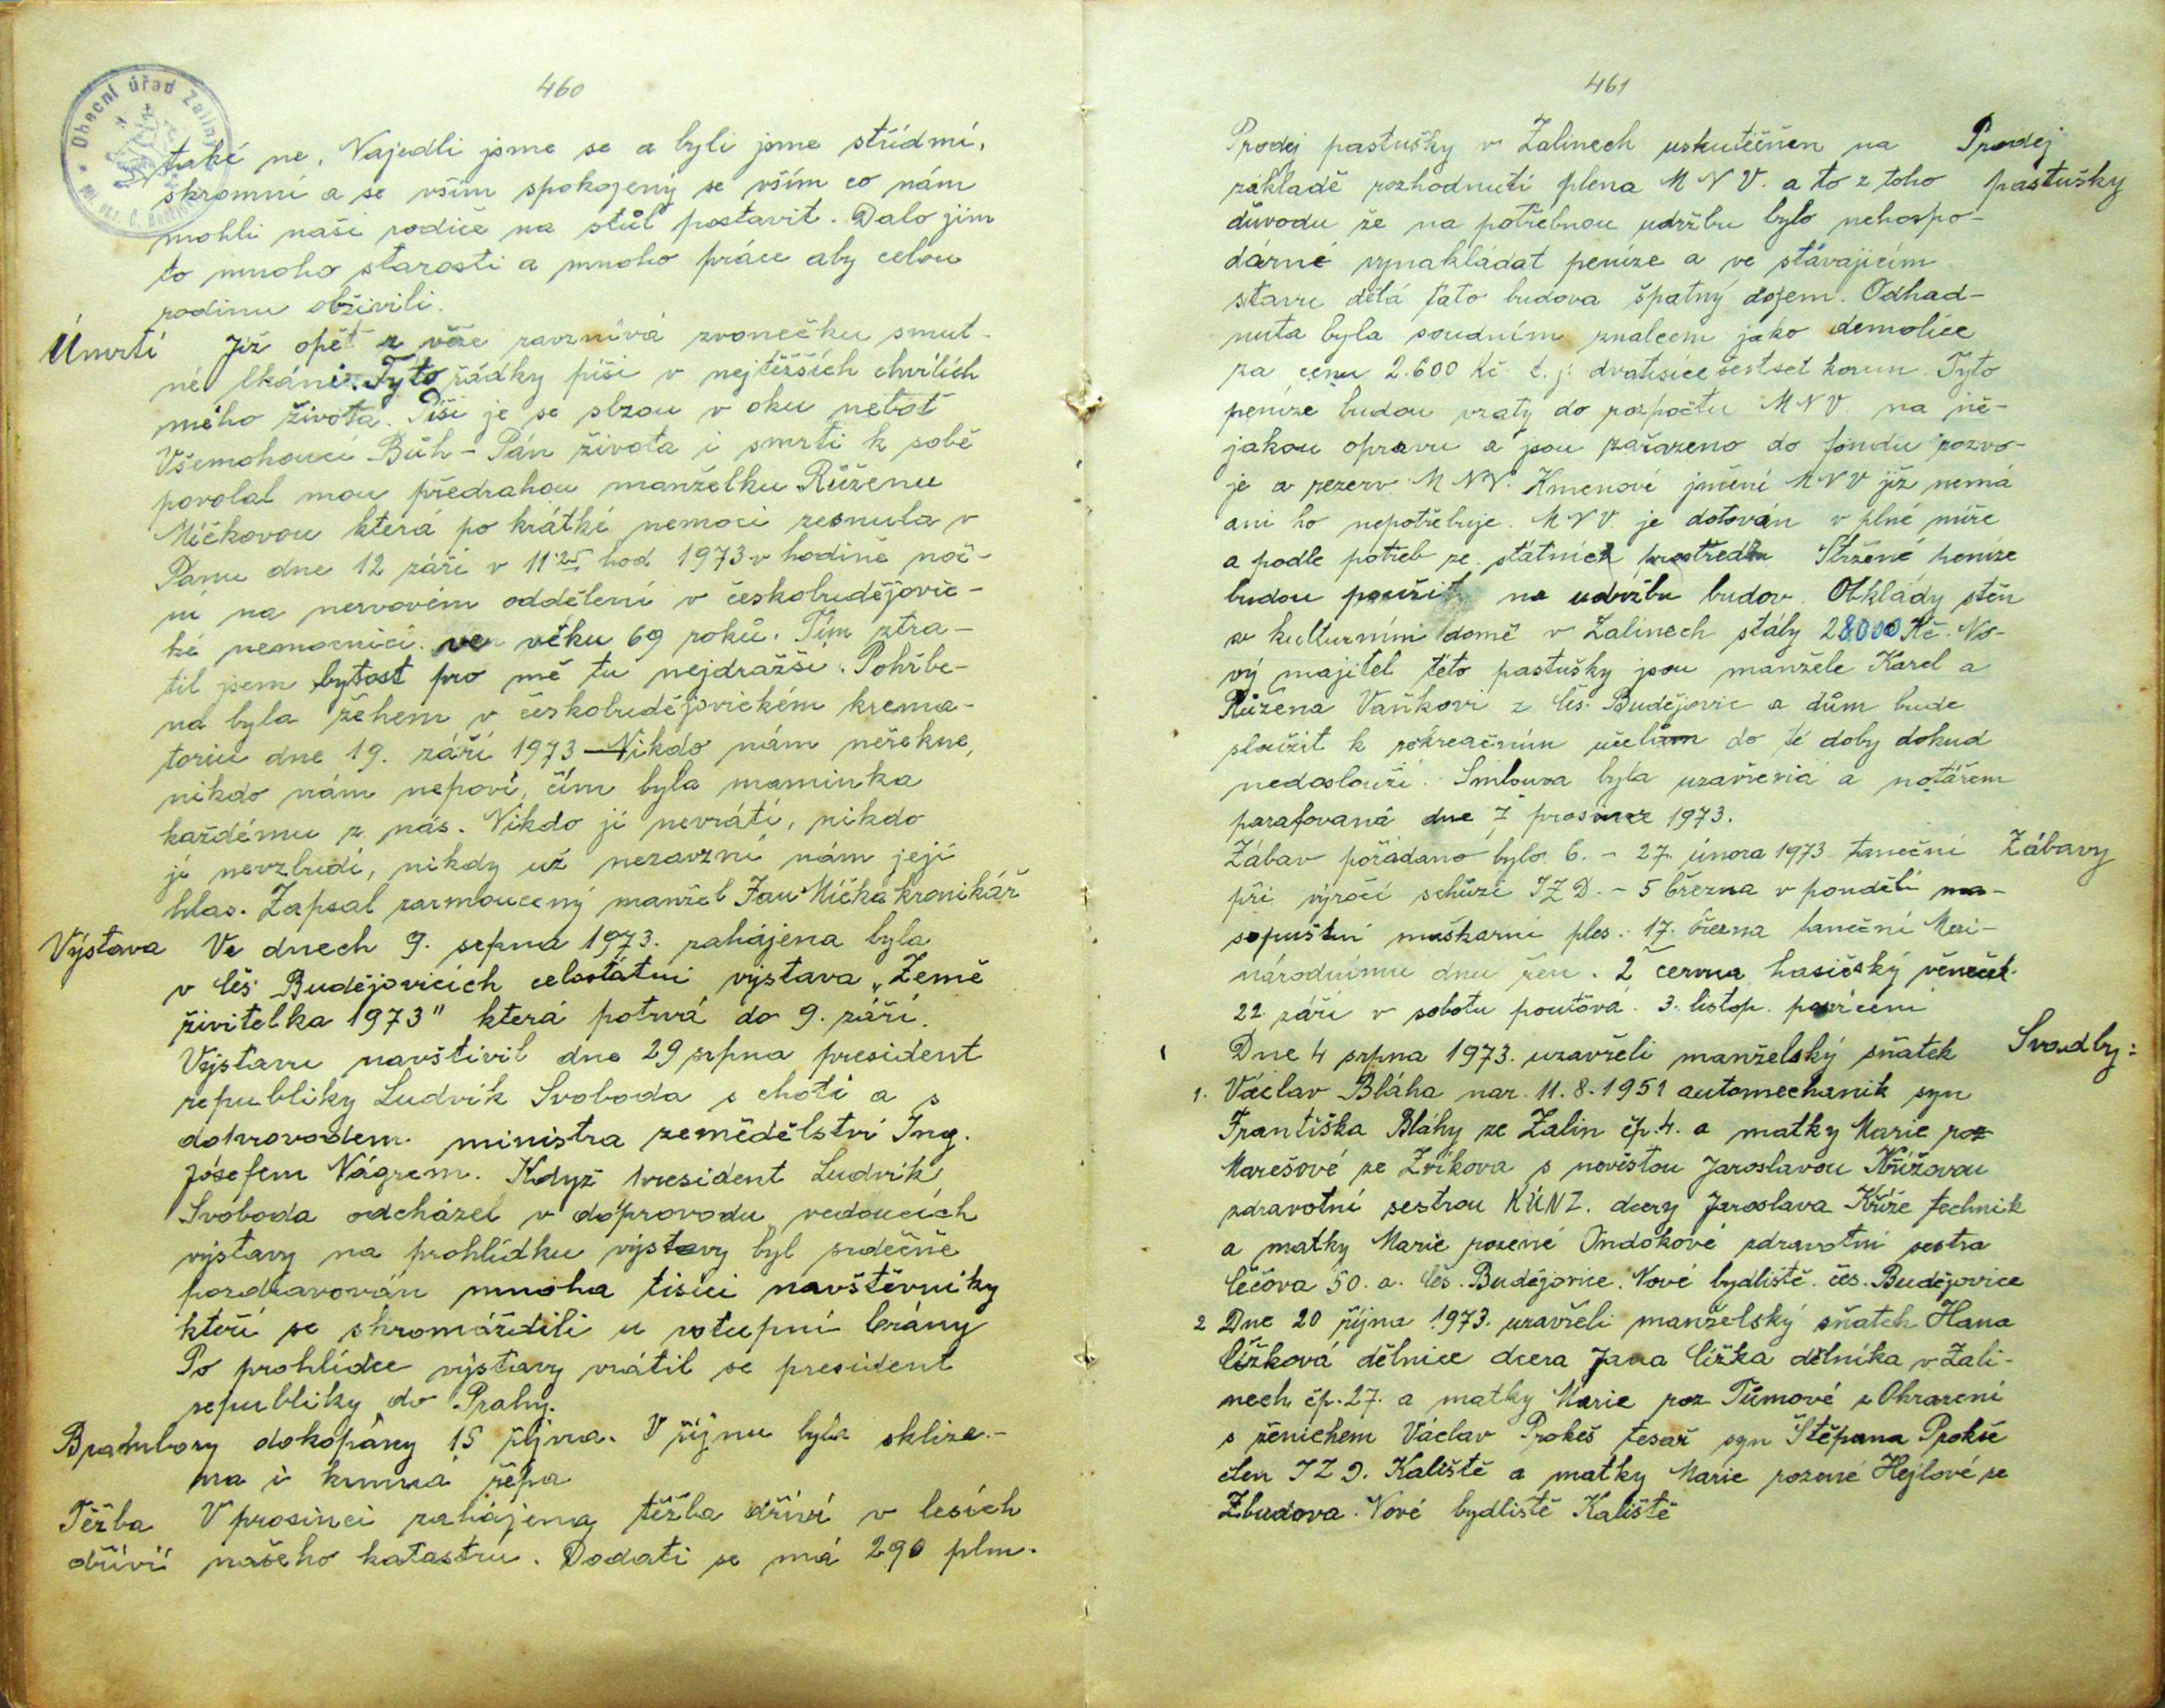 460
Obecní úřad Zaliny
také ne. Najedli jsme se a byli jsme střídmí,
skromní a se vším spokojený se vším co nám
mohli naši rodiče na stůl postavit. Dalo jim
to mnoho starosti a mnoho práce aby celou
rodinu obživili.
Úmrtí Již opět z věže zavznívá zvonečku smut-
né lkáni. Tyto řádky píši v nejtěžších chvílích
mého života. Píši je se slzou v oku neboť
Všemohoucí Bůh - Pán života i smrti k sobě
povolal mou předrahou manželku Růženu
Míčkovou která po krátké nemoci zesnula v
Pánu dne 12 září v 11·25 hod 1973 v hodině noč-
ní na nervovém oddělení v českobudějovic-
ké nemocnici. ve věku 69 roků. Tím ztra-
til jsem bytost pro mě tu nejdražší. Pohřbe-
na byla žehem v českobudějovickém krema-
toriu dne 19. září 1973 - Nikdo nám neřekne,
nikdo nám nepoví, čím byla maminka
každému z nás. Nikdo jí nevrátí, nikdo
jí nevzbudí, nikdy už nezavzní nám její
hlas. Zapsal zarmoucený manžel Jan Míčka kronikář
Výstava Ve dnech 9. srpna 1973. zahájena byla
v Čes. Budějovicích celostátní výstava „Země
živitelka 1973" která potrvá do 9. září.
Výstavu navštívil dne 29 srpna president
republiky Ludvík Svoboda s chotí a s
doprovodem ministra zemědělství Ing.
Josefem Nágrem. Když president Ludvík
Svoboda odcházel v doprovodu vedoucích
výstavy na prohlídku výstavy byl srdečně
pozdravován mnoha tisíci navštěvníky
kteří se shromáždili u vstupní brány
Po prohlídce výstavy vrátil se president
republiky do Prahy.
Brambory dokopány 15 října. V říjnu byla sklize-
na i krmná řepa
Těžba V prosinci zahájena těžba dříví v lesích
dříví našeho katastru. Dodati se má 290 plm.
461
Prodej pastušky v Zalinech uskutečněn na Prodej
základě rozhodnutí plena M N V. a to z toho pastušky
důvodu že na potřebnou udržbu bylo nehospo-
dárné vynakládat peníze a ve stávajícím
stavu dělá tato budova špatný dojem. Odhad-
nuta byla soudním znalcem jako demolice
za cenu 2.600 Kč. t.j. dvatisíce šestset korun. Tyto
peníze budou vzaty do rozpočtu M N V. na ně-
jakou opravu a jsou zařazeno do fondu rozvo-
je a rezerv M N V. Kmenové jmění M N V již nemá
ani ho nepotřebuje. M N V. je dotován v plné míře
a podle potřeb ze státních prostředků Stržené peníze
budou použity na udržbu budov. Obklady stěn
v kulturním domě v Zalinech stály 28000 Kč. No-
vý majitel této pastušky jsou manžele Karel a
Růžena Vaňkovi z Čes. Budějovic a dům bude
sloužit k rekreačním učelům do té doby dokud
nedoslouží. Smlouva byla uzavřená a notářem
parafovaná dne 7 prosince 1973.
Zábav pořádano bylo 6. - 27. února 1973 taneční Zábavy
při výročí schůzi J Z D. - 5 března v pondělí ma-
sopustní maškarní ples. 17. března taneční Mezi-
národnímu dnu žen. 2 června hasičský věneček
22. září v sobotu pouťová. 3. listop. posvícení
Dne 4 srpna 1973. uzavřeli manželský sňatek Svadby:
1. Václav Bláha nar. 11. 8. 1951 automechanik syn
Františka Bláhy ze Zalin čp. 4. a matky Marie roz
Marešové ze Zvíkova s nevěstou Jaroslavou Křížovou
zdravotní sestrou KÚNZ. dcery Jaroslava Kříže technik
a matky Marie rozené Ondokové zdravotní sestra
50. a. Čes. Budějovice. Nové bydliště. čes. Budějovice
2 Dne 20 října 1973. uzavřeli manželský sňatek Hana
Čížková dělnice dcera Jana Čížka dělníka v Zali-
nech čp. 27. a matky Marie roz Tůmové z Ohrazení
s ženichem Václav Prokeš tesař syn Štěpana Prokše
člen J Z D. Kaliště a matky Marie rozené Hejlové ze
Zbudova. Nové bydliště Kaliště